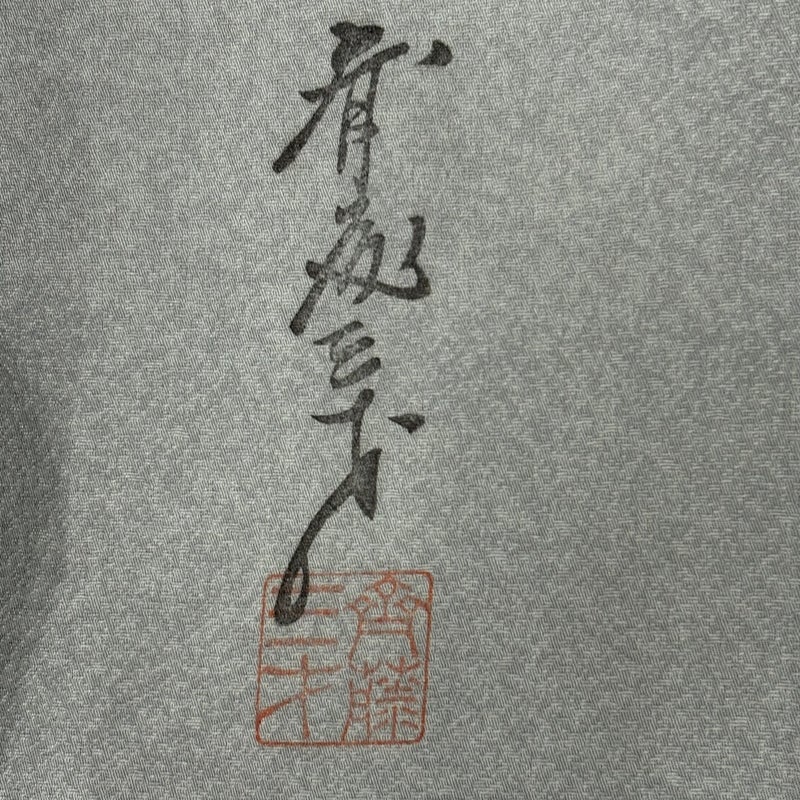 斉藤三才
齊藤三才